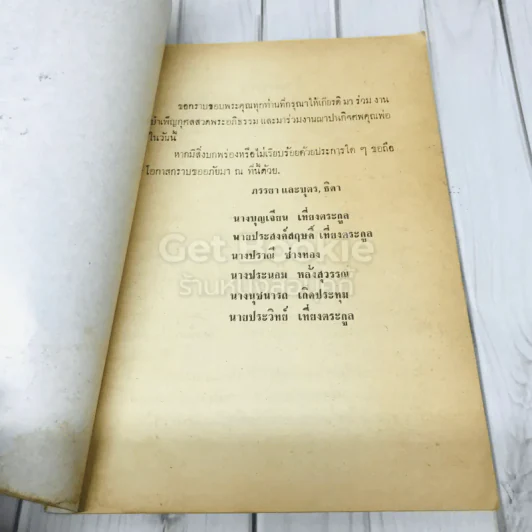 ขอกราบขอบพระคุณทุกท่านที่กรุณาให้เกียรติ มา ร่วม งาน
บำเพ็ญกุศลสวดพระอภิธรรม และมาร่วมงานฌาปนกิจศพคุณพ่อ
ในวันนี้
หากมีสิ่งบกพร่องหรือไม่เรียบร้อยด้วยประการใด ๆ ขอถือ
โอกาสกราบขออภัยมา ณ ที่นี้ด้วย.
ภรรยา และบุตร, ธิดา
นางบุญเจียน เที่ยงตระกูล
นายประสงค์สฤษดิ์ เที่ยงตระกูล
นางปราณี ช่างทอง
นางประนอม หลั่งสุวรรณ
นางนุชนารถ เกิดประทุม
นายประวิทย์ เที่ยงตระกูล
Get Bookie
ร้านหนังสือเก็ทบุ๊คกี้